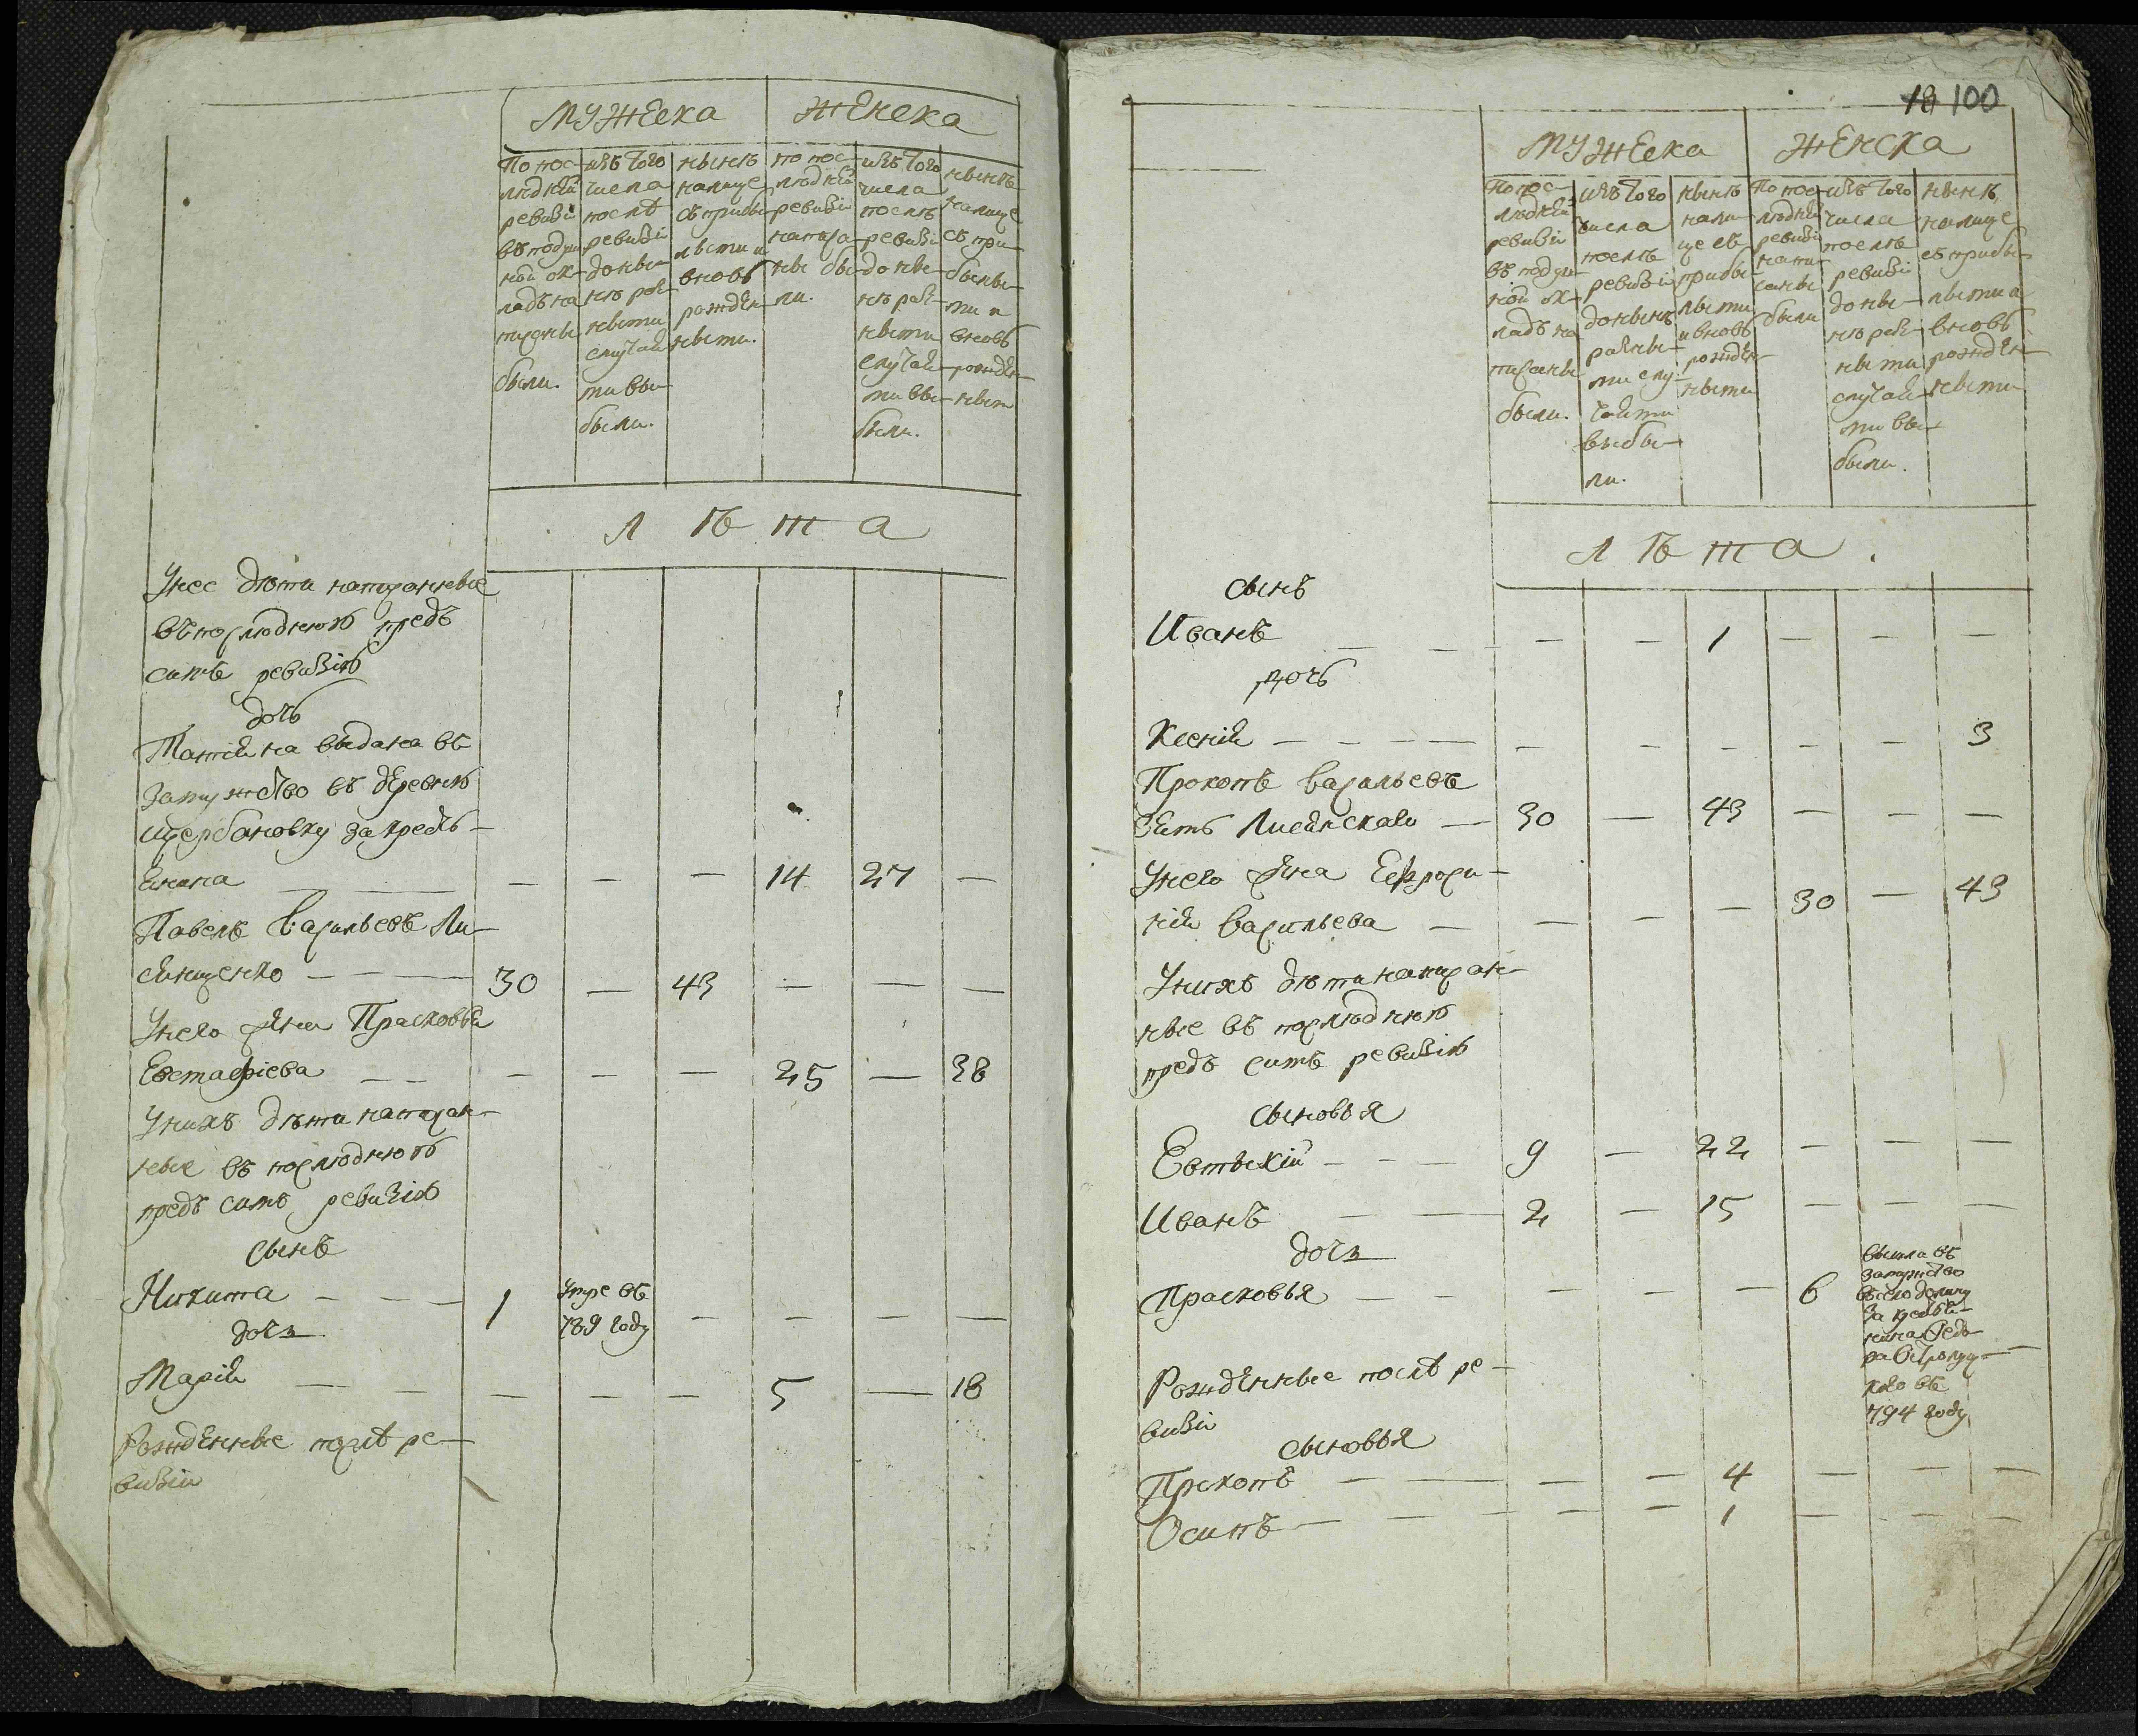 мужеска
женска
По пос-
лѣдней
ревизіи
въ подуш-
ной ок-
ладъ на
писаны
были.
изъ того
числа
послѣ
ревизіи
до ны-
нѣ раз-
ными
случаи
ми вы
были.
нынѣ
налице
съ прибы
лыми и
вновь
рожден
ными.
по пос-
лѣдней
ревизіи
написа-
ны бы-
ли.
изъ того
числа
послѣ
ревизіи
до ны-
нѣ раз-
ными
случаи-
ми вы-
были.
нынѣ
налице
съ при-
былы-
ми и
вновь
рожден-
ным
лѣта
У нее дѣти написанные
въ послѣднюю предъ
симъ ревизію
дочь
Татияна выдана въ
замужство въ деревню
Щербановку за кресть-
янина — — — — — 14 27 —
Павелъ Васильевъ Ли-
сянщенко — — — 30 — 43 — — —
У него жена Прасковья
Евстафіева — — — — — 25 — 38
У нихъ дѣти написан-
ные въ послѣднюю
предъ симъ ревизію
сынъ
Никита — — — 1 умре въ
789 году — — — —
дочь
Марія — — — — — 5 — 18
Рожденные послѣ ре-
визіи
18 100
мужеска
женска
По пос-
лѣдней
ревизіи
въ подуш-
ной ок-
ладъ на
писаны
были.
изъ того
числа
послѣ
ревизіи
до нынѣ
разны-
ми слу-
чаими
выбы-
ли.
нынѣ
нали-
це съ
прибы-
лыми
и вновь
рожден-
ными
По пос-
лѣдней
ревизіи
напи-
саны
были
изъ того
числа
послѣ
ревизіи
до ны-
нѣ раз-
ными
случаи-
ми вы-
были.
нынѣ
налице
съ прибы-
лыми и
вновь
рожден-
ными
лѣта.
сынъ
Иванъ — — — — 1 — — —
дочь
Ксенія — — — — — — — — — 3
Прокопъ Васильевъ
зять Лисянскаго — 30 — 43 — — —
У него жена Ефроси-
нія Васильева — — — — 30 — 43
У нихъ дѣти написан-
ные въ послѣднюю
предъ симъ ревизію
сыновья
Евтихій — — — 9 — 22 — — —
Иванъ — — 2 — 15 — — —
дочь
Прасковья — — — — — 6
вышла въ
замужство
въ село долину
за крестья-
нина Федо-
ра
794 году
Рожденные послѣ ре-
визіи
сыновья
Прокопъ — — — — 4 — — —
Осипъ — — — — — 1 — — —